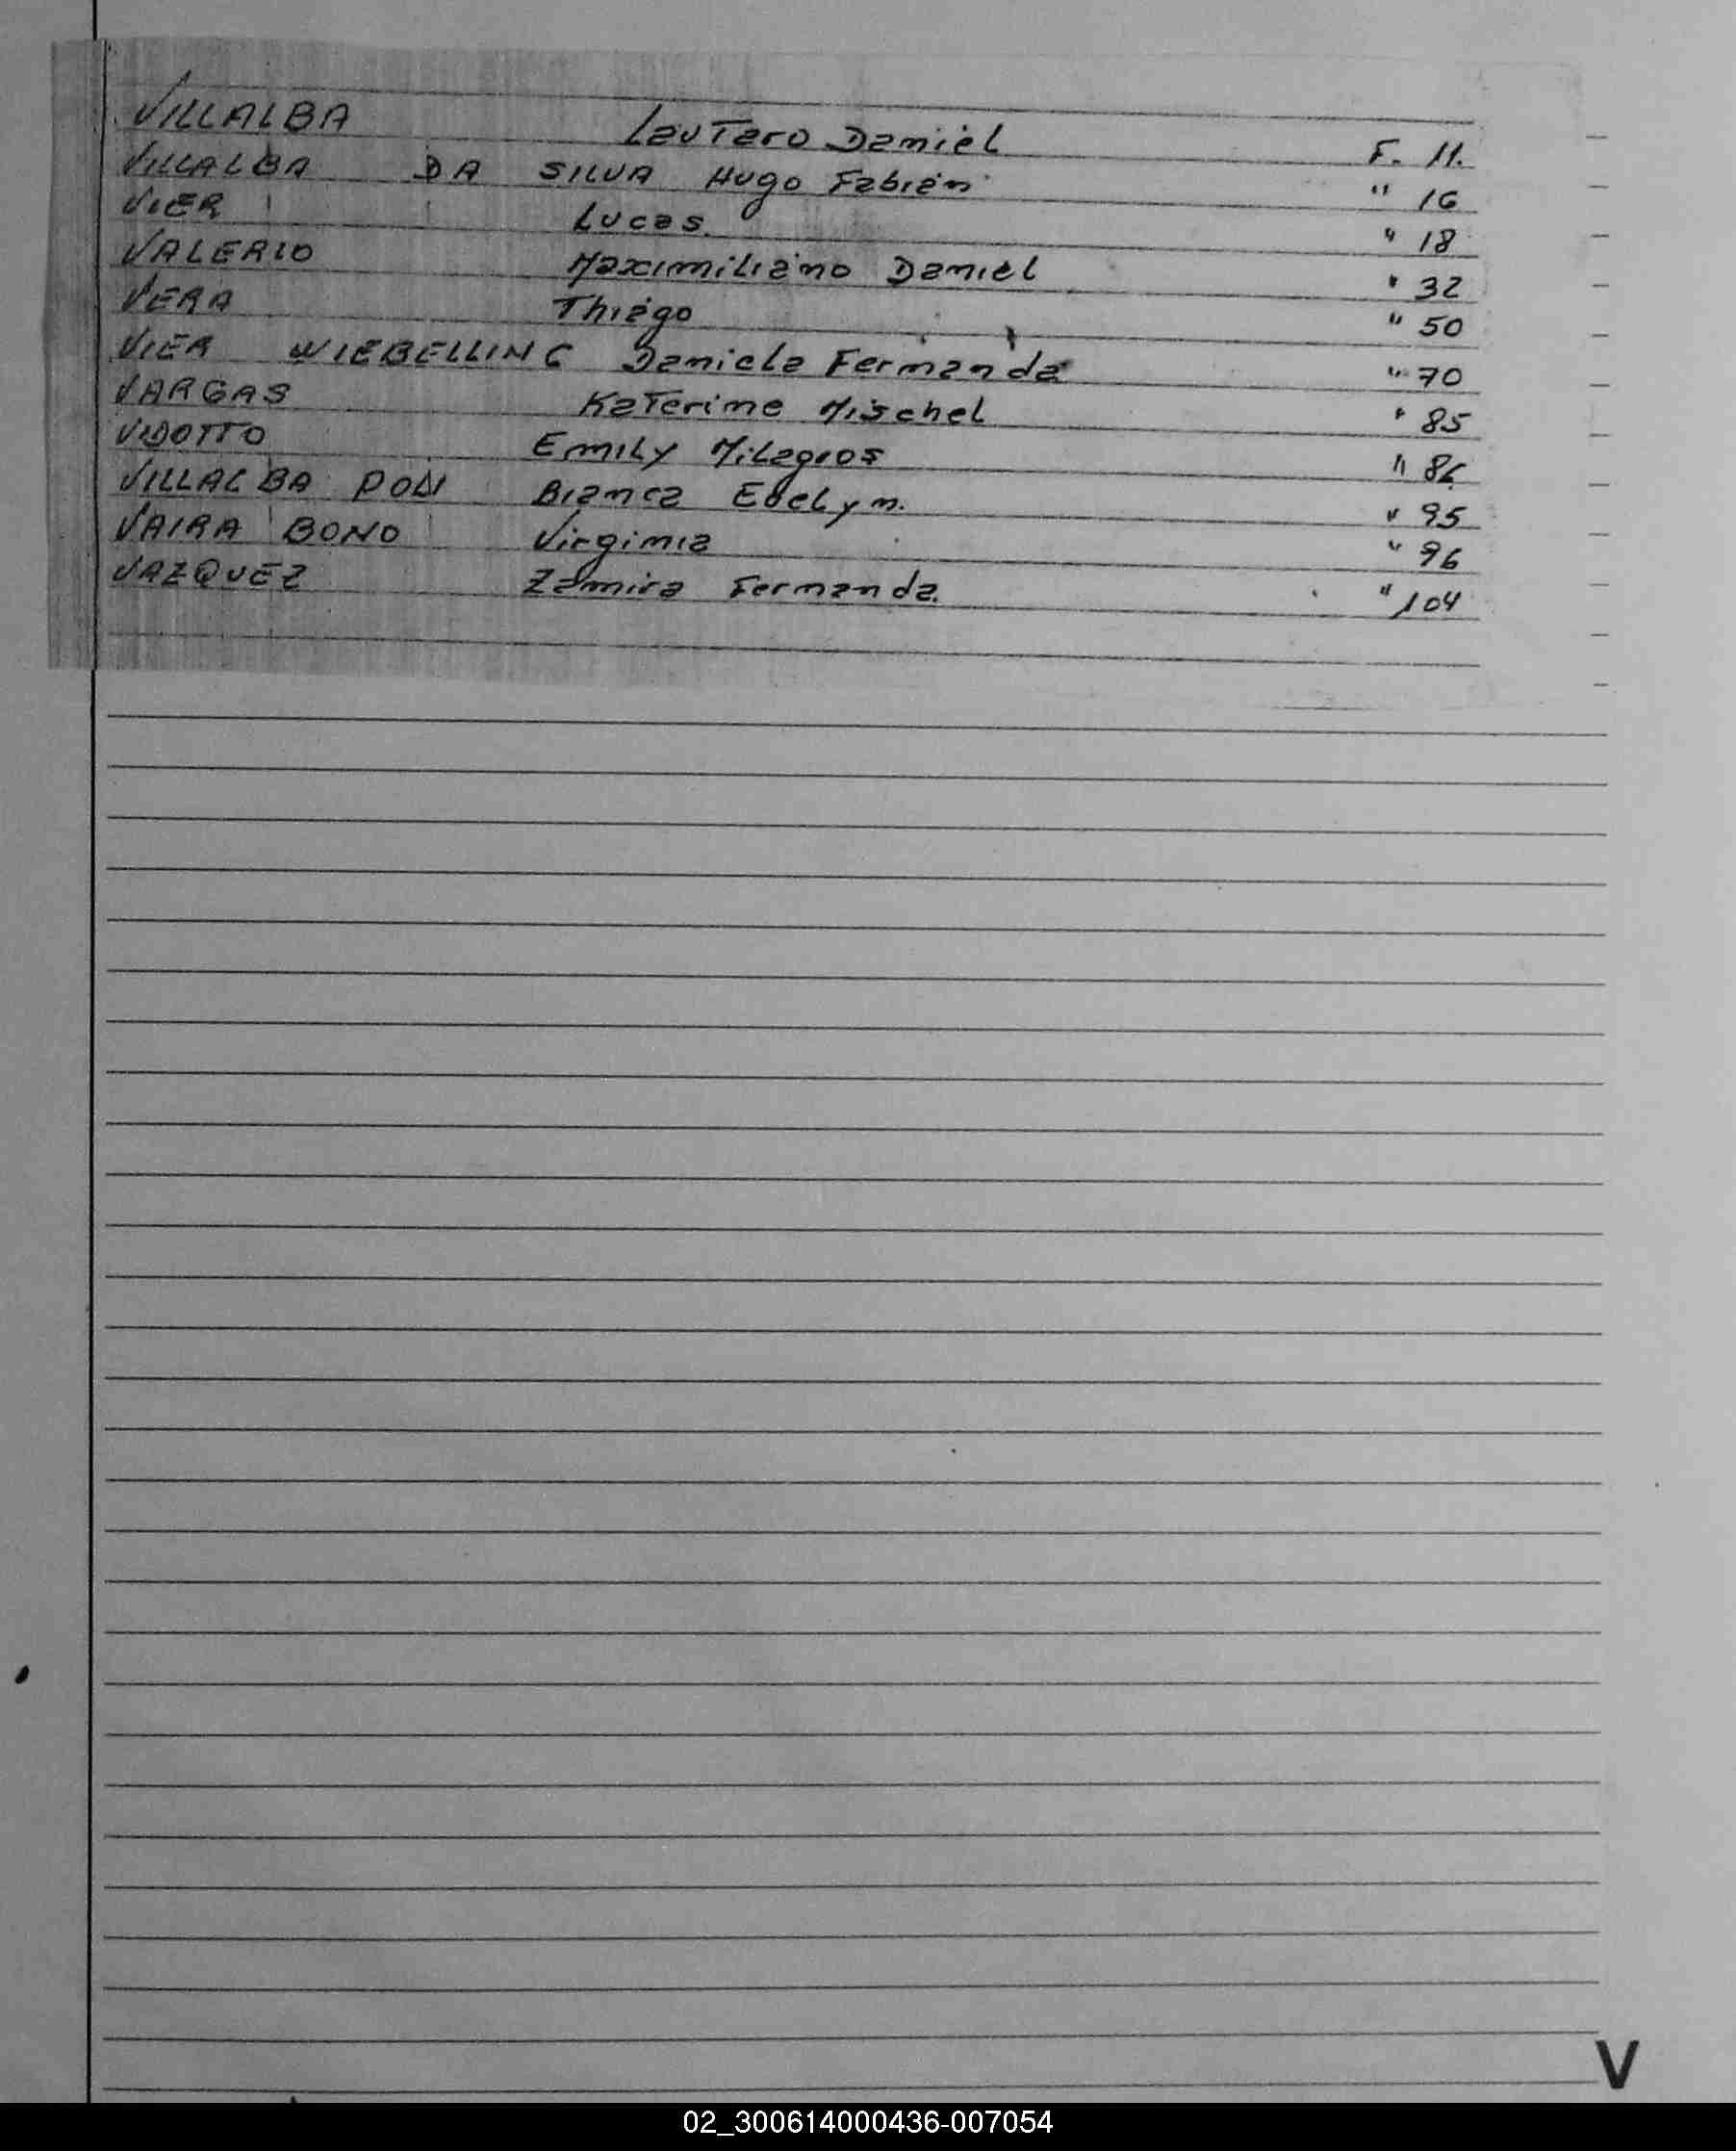 VILLALBA Lautaro Daniel F. 11.
VILLALBA DA SILVA Hugo Fabián " 16
VIER Lucas. " 18
VALERIO Maximiliano Daniel " 32
VERA Thiago " 50
VIER WIEBELLING Daniela Fernanda " 70
VARGAS Katerine Mischel " 85
VIDOTTO Emily Milagros " 86
VILLALBA Bianca Evelyn. " 95
VAIRA BONO Virginia " 96
VAZQUEZ Zamira Fernanda. " 104
V
02_300614000436-007054